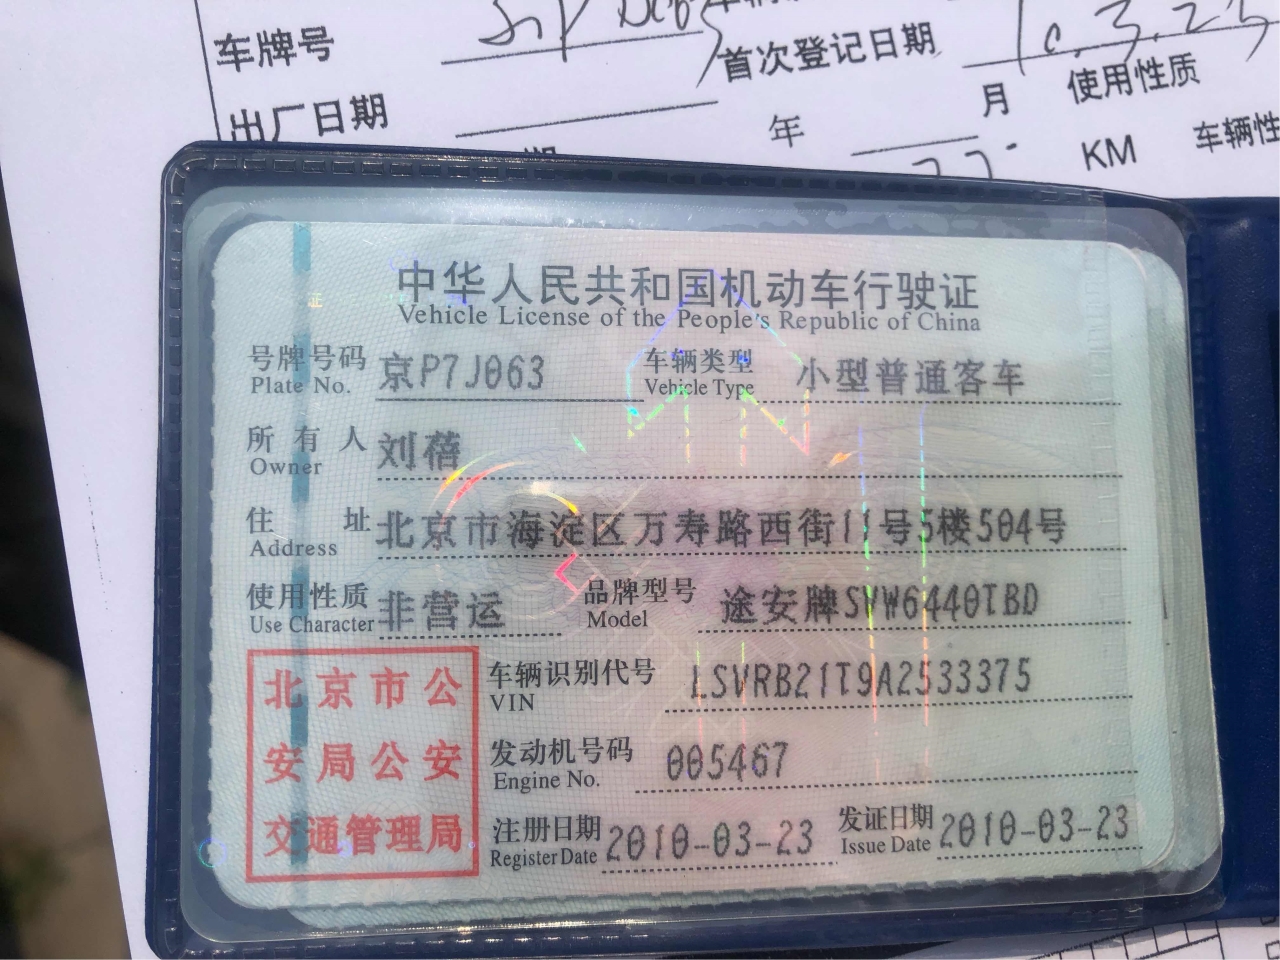 车牌号
首次登记日期 10.3.23
出厂日期
年
月
使用性质
KM
车辆性
中华人民共和国机动车行驶证
Vehicle License of the People's Republic of China
号牌号码 京P7J063 车辆类型 小型普通客车
Plate No. Vehicle Type
所有人 刘蓓
Owner
住址 北京市海淀区万寿路西街11号5楼504号
Address
使用性质 非营运 品牌型号 途安牌SVW6440TBD
Use Character Model
车辆识别代号 LSVRB21T9A2533375
VIN
发动机号码 005467
Engine No.
注册日期 2010-03-23 发证日期 2010-03-23
Register Date Issue Date
北京市公
安局公安
交通管理局